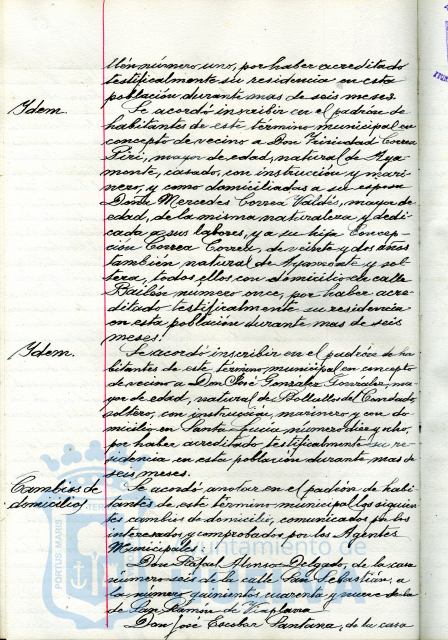 llén número uno, por haber acreditado
testificalmente su residencia en esta
población durante mas de seis meses.
Ydem.
Se acordó inscribir en el padrón de
habitantes de este término municipal en
concepto de vecino a Don Trinidad Correa
Piri, mayor de edad, natural de Aya-
monte, casado, con instrucción y mari-
nero, y como domiciliadas a su esposa
Doña Mercedes Correa Valdés, mayor de
edad, de la misma naturaleza y dedi-
cada a sus labores, y a su hija Concep-
ción Correa Correa, de veinte y dos años
también, natural de Ayamonte y sol-
tera, todos ellos con domicilio en calle
Bailén número once, por haber acre-
ditado testificalmente su residencia
en esta población durante mas de seis
meses.
Ydem.
Se acordó inscribir en el padrón de ha-
bitantes de este término municipal en concepto
de vecino a Don José González González, ma-
yor de edad, natural de Bollullos del Condado,
soltero, con instrucción, marinero y con do-
micilio en Santa Lucía número diez y ocho,
por haber acreditado testificalmente su re-
sidencia en esta población durante mas de
seis meses.
Cambios de
domicilios
Se acordó anotar en el padrón de habi-
tantes de este término municipal los siguien-
tes cambios de domicilio, comunicados por los
interesados y comprobados por los Agentes
Municipales.
Don Rafael Alonso Delgado, de la casa
número seis de la calle San Sebastián, a
la número quinientos cuarenta y nueve de la
de San Ramón de
Don José Escobar Santana, de la casa
Ayuntamiento de
PORTUS MARIS